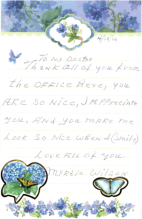 To My Doctor
Thank all of you from
the office Here, you
ARE So Nice, I Appreciate
You, And you make me
Look So Nice when I (Smile)
Love All of you
Wilson